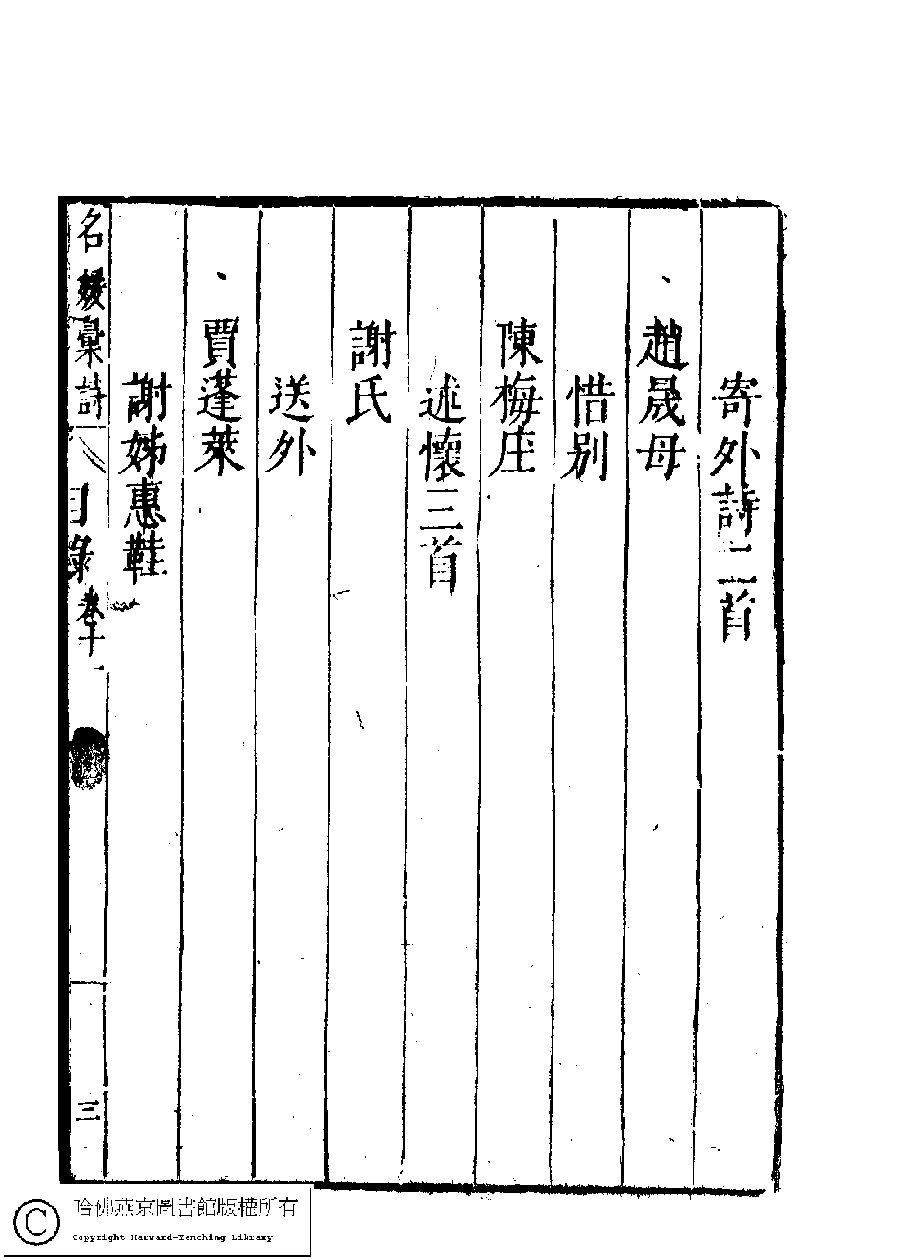 寄外詩二首
趙晟母
惜别
陳梅庄
述懷三首
謝氏
送外
賈蓬萊
謝姊惠鞋
名媛彙詩 目錄 卷十一 三
哈佛燕京圖書館版權所有
Copyright Harvard-Yenching Library